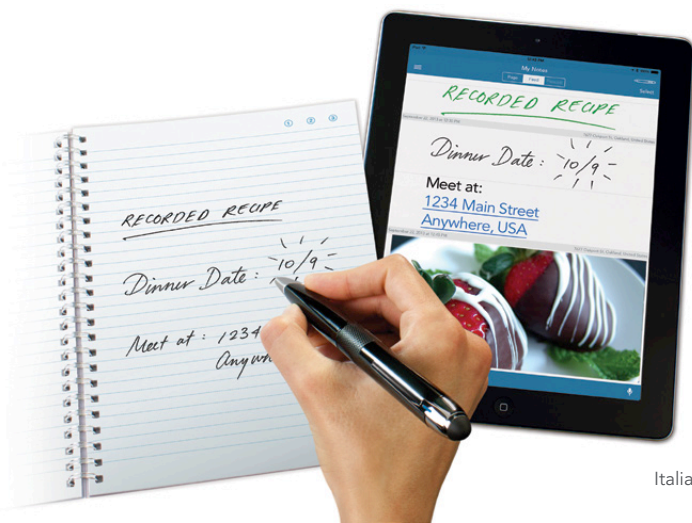 RECORDED RECIPE
Dinner Date: 10/9
Meet at: 1234
My Notes
Page Feed
Select
RECORDED RECIPE
Dinner Date: 10/9
Meet at:
1234 Main Street
Anywhere, USA
Italia